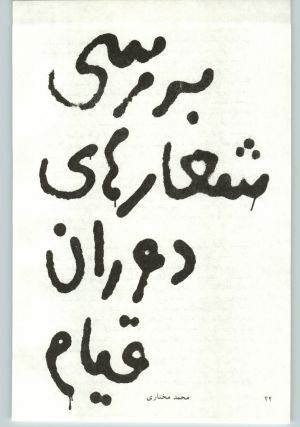 بررسی
شعارهای
دوران
قیام
محمد مختاری
۲۲